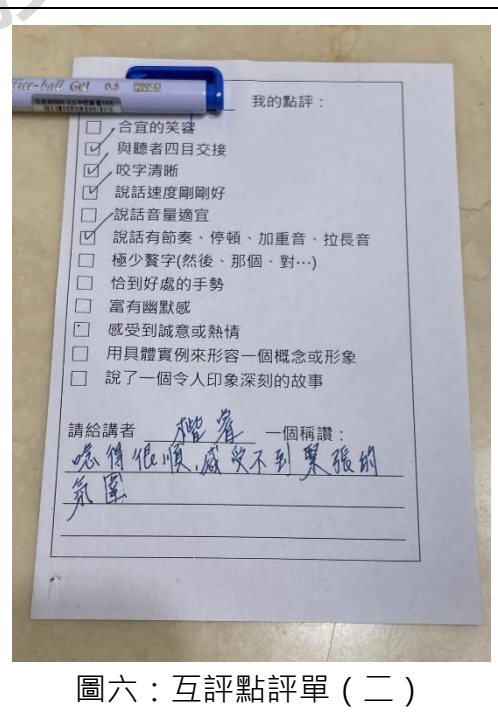 Office-ball Gel 0.5
我的點評:
☐ 合宜的笑容
☑ 與聽者四目交接
☑ 咬字清晰
☑ 說話速度剛剛好
☐ 說話音量適宜
☑ 說話有節奏、停頓、加重音、拉長音
☐ 極少贅字(然後、那個、對…)
☐ 恰到好處的手勢
☐ 富有幽默感
☐ 感受到誠意或熱情
☐ 用具體實例來形容一個概念或形象
☐ 說了一個令人印象深刻的故事
請給講者 楷睿 一個稱讚:
唸得很順,感受不到緊張的
氛圍
圖六:互評點評單(二)